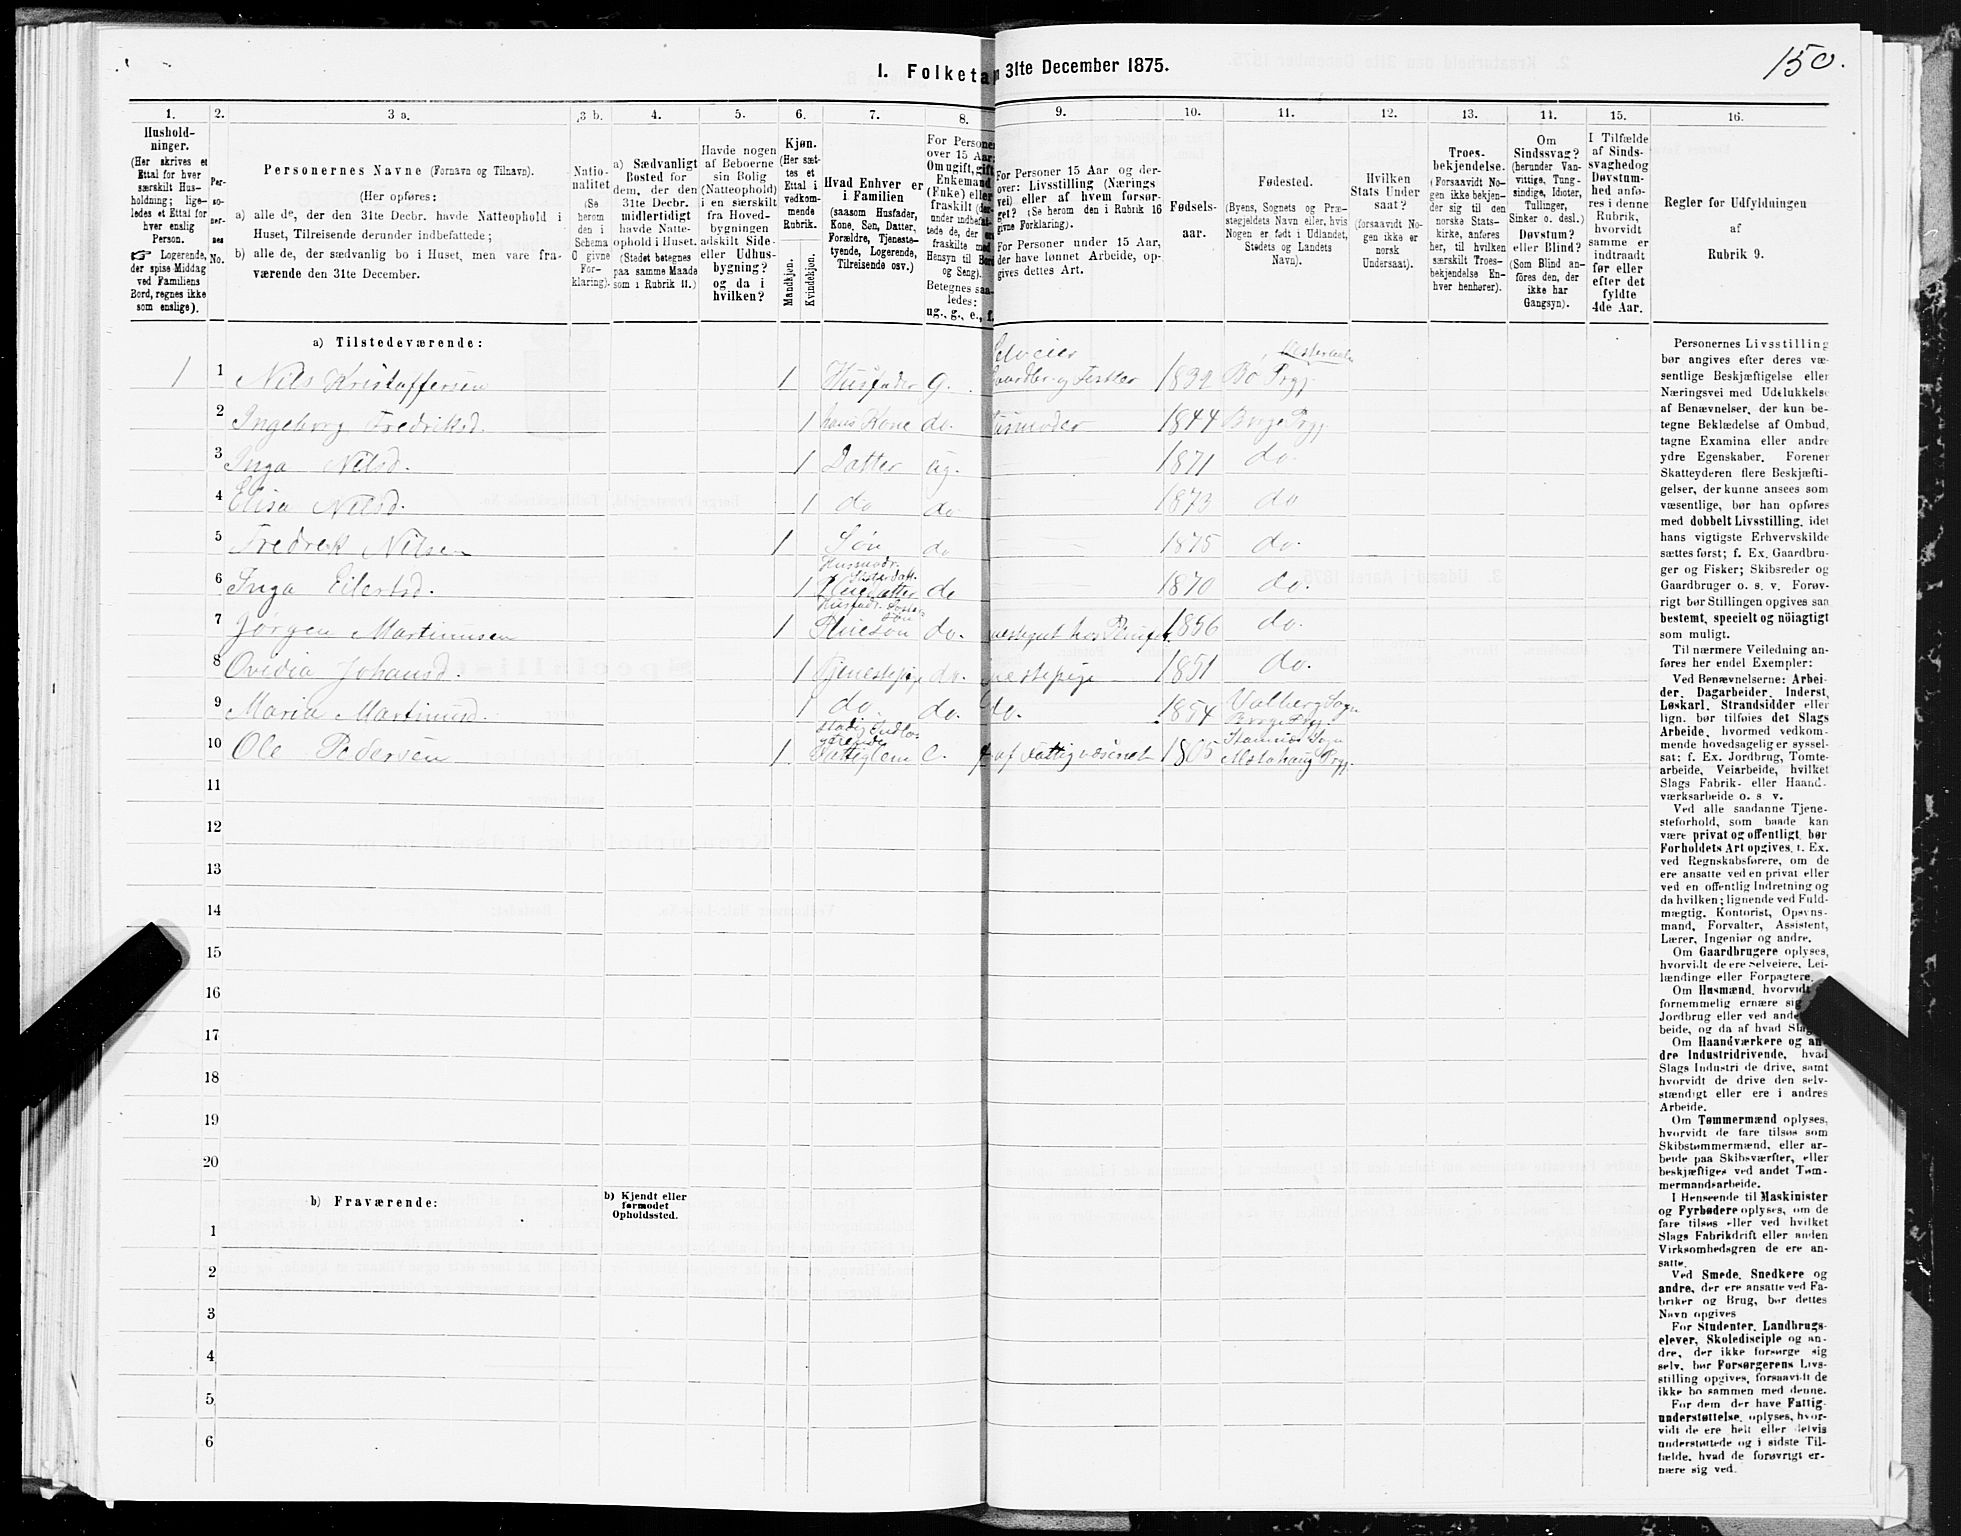 150.
1. Folketæ 31te December 1875.
1.
2.
3 a.
3 b.
4.
5.
6.
7.
8.
9.
10.
11.
12.
13.
14.
15.
16.
Hushold-
ninger.
(Her skrives et
Ettal for hver
særskilt Hus-
holdning; lige-
ledes et Ettal for
hver enslig
Person.
☞ Logerende,
der spise Middag
ved Familiens
Bord, regnes ikke
som enslige).
Per-
so-
ner-
nes
No.
Personernes Navne (Fornavn og Tilnavn).
(Her opføres:
a) alle de, der den 31te Decbr. havde Natteophold i
Huset, Tilreisende derunder indbefattede;
b) alle de, der sædvanlig bo i Huset, men vare fra-
værende den 31te December.
Natio-
nalitet
(Se
herom
den i
Schema
0 givne
For-
klaring).
a) Sædvanligt
Bosted for
dem, der den
31te Decbr.
midlertidigt
havde Natte-
ophold i Huset.
(Stedet betegnes
paa samme Maade
som i Rubrik 11.)
Havde nogen
af Beboerne
sin Bolig
(Natteophold)
i en særskilt
fra Hoved-
bygningen
adskilt Side-
eller Udhus-
bygning?
og da i
hvilken?
Kjøn.
(Her sæt-
tes et
Ettal i
vedkom-
mende
Rubrik.
Mandkjøn.
Kvindekjøn.
Hvad Enhver er
i Familien
(saasom Husfader,
Kone, Søn, Datter,
Forældre, Tjeneste-
tyende, Logerende,
Tilreisende osv.)
For Persone
over 15 Aar:
Om ugift, gift
Enkemand
(Enke) eller
fraskilt (der-
under indbefat-
tede de, der er
fraskilte med
Hensyn til Bord
og Seng).
Betegnes saa-
ledes:
ug., g., e., f.
For Personer 15 Aar og der-
over: Livsstilling (Nærings
vei) eller af hvem forsør-
get? (Se herom den i Rubrik 16
givne Forklaring).
For Personer under 15 Aar,
der have lønnet Arbeide, op-
gives dettes Art.
Fødsels-
aar.
Fødested.
(Byens, Sognets og Præ-
stegjeldets Navn eller, hvis
Nogen er født i Udlandet,
Stedets og Landets
Navn).
Hvilken
Stats Under
saat?
(forsaavidt No-
gen ikke er
norsk
Undersaat).
Troes-
bekjendelse.
(Forsaavidt No-
gen ikke bekjen-
der sig til den
norske Stats-
kirke, anføres
her, til hvilken
særskilt Troes-
bekjendelse En-
hver henhører).
Om
Sindssvag?
(herunder Van-
vittige, Tung-
sindige, Idioter,
Tullinger,
Sinker o. desl.)
Døvstum?
eller Blind?
(Som Blind an-
føres den, der
ikke har
Gangsyn).
I Tilfælde
af Sinds-
svaghed og
Døvstum-
hed anfø-
res i denne
Rubrik,
hvorvidt
samme er
indtraadt
før eller
efter det
fyldte
4de Aar.
Regler for Udfyldningen
af
Rubrik 9.
a) Tilstedeværende:
1 1 Nils Kristoffersen 1 Husfader G. Selveier Gaardbr. og Fisker 1832 Bø Prgj. Vesteraalen
2 Ingeborg Fredriksd. 1 hans Kone do. Husmoder 1844 Borge Prgj.
3 Inga Nilsd. 1 Datter ug. 1871 do.
4 Elisa Nilsd. 1 do do 1873 do
5 Fredrek Nilsen 1 Søn do 1875 do.
6 Inga Eilertsd. 1 Husmodr. Søsterdatt. do 1870 do.
7 Jørgen Martinusen 1 Husfadr. Søster-søn Pleiesøn do. 1856 do.
8 Ovedia Johansd. 1 Tjenestepige do. Tjenestepige 1851 do.
9 Maria Martinusd. 1 do. do. do. 1854 Valberg Sogn Borge Prgj.
10 Ole Pedersen 1 stadig Indlogerende Fattiglem E. f af Fattigvæsenet 1805 Stamnæs Sogn Alstahaug Prgj.
11
12
13
14
15
16
17
18
19
20
b) Fraværende:
b) Kjendt eller
formodet
Opholdssted.
1
2
3
4
5
6
Personernes Livsstilling
bør angives efter deres væ-
sentlige Beskjæftigelse eller
Næringsvei med Udelukkelse
af Benævnelser, der kun be-
tegne Beklædelse af Ombud,
tagne Examina eller andre
ydre Egenskaber. Forener
Skatteyderen flere Beskjæfti-
gelser, der kunne ansees som
væsentlige, bør han opføres
med dobbelt Livsstilling, idet
hans vigtigste Erhvervskilde
sættes først; f. Ex. Gaardbru-
ger og Fisker; Skibsreder og
Gaardbruger o. s. v. Forøv-
rigt bør Stillingen opgives saa
bestemt, specielt og nöiagtigt
som muligt.
Til nærmere Veiledning an-
føres her endel Exempler:
Ved Benævnelserne: Arbei-
der, Dagarbeider, Inderst,
Løskarl, Strandsidder eller
lign. bør tilføies det Slags
Arbeide, hvormed vedkom-
mende hovedsagelig er syssel-
sat; f. Ex. Jordbrug, Tomte-
arbeide, Veiarbeide, hvilket
Slags Fabrik- eller Haand-
værksarbeide o. s. v.
Ved alle saadanne Tjene-
steforhold, som baade kan
være privat og offentligt, bør
Forholdets Art opgives, f. Ex.
ved Regnskabsførere, om de
ere ansatte ved en privat eller
ved en offentlig Indretning og
da hvilken; lignende ved Fuld-
mægtig, Kontorist, Opsyns-
mand, Forvalter, Assistent,
Lærer, Ingeniør og andre.
Om Gaardbrugere oplyses,
hvorvidt de ere Selveiere, Lei-
lændinge eller Forpagtere.
Om Husmænd, hvorvidt
fornemmelig ernære sig
Jordbrug eller ved ande
beide, og da af hvad Slag
Om Haandværkere og an-
dre Industridrivende, hvad
Slags Industri de drive, samt
hvorvidt de drive den selv-
stændigt eller ere i andres
Arbeide.
Om Tømmermænd oplyses,
hvorvidt de fare tilsøs som
Skibstømmermænd, eller ar-
beide paa Skibsværfter, eller
beskjæftiges ved andet Tøm-
mermandsarbeide.
I Henseende til Maskinister
og Fyrbødere oplyses, om de
fare tilsøs eller ved hvilket
Slags Fabrikdrift eller anden
Virksomhedsgren de ere an-
satte.
Ved Smede, Snedkere og
andre, der ere ansatte ved Fa-
briker og Brug, bør dettes
Navn opgives
For Studenter, Landbrugs-
elever, Skoledisciple og an-
dre, der ikke forsørge sig
selv, bør Forsørgerens Livs-
stilling opgives, forsaavidt de
ikke bo sammen med denne.
For dem der have Fattig-
understøttelse, oplyses, hvor-
vidt de ere helt eller delvis
understøttede og i sidste Til-
fælde, hvad de forøvrigt er-
nære sig ved.